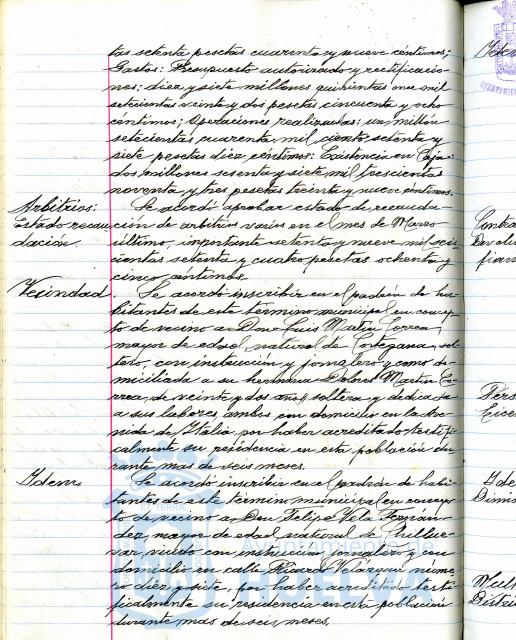 tas setenta pesetas cuarenta y nueve centimos;
Gastos: Presupuesto autorizado y rectificacio-
nes; diez y siete millones quinientas once mil
setecientas veinte y dos pesetas cincuenta y ocho
centimos; Operaciones realizadas: un millón
setecientas cuarenta mil ciento setenta y
siete pesetas diez centimos: Existencia en Caja:
dos millones sesenta y siete mil trescientas
noventa y tres pesetas treinta y nueve centimos.
Arbitrios:
Estado recau-
dación.
Se acordó aprobar estado de recauda-
ción de arbitrios varios en el mes de Marzo
último, importante setenta y nueve mil seis-
cientas setenta y cuatro pesetas ochenta y
cinco céntimos.
Vecindad.
Se acordó inscribir en el padrón de ha-
bitantes de este termino municipal en concep-
to de vecino a Don Luis Martin Correa,
mayor de edad, natural de Cortegana, sol-
tero, con instrucción y jornalero y como do-
miciliada a su hermana Dolores Martin Co-
rrea, de veinte y dos años, soltera y dedicada
a sus labores, ambos con domicilio en la Ave-
nida de Italia por haber acreditado testifi-
calmente su residencia en esta población du-
rante mas de seis meses.
Idem.
Se acordó inscribir en el padrón de habi-
tantes de este termino municipal en concep-
to de vecino a Don Felipe Vela Fernán-
dez, mayor de edad, natural de
viudo con instrucción jornalero y con
domicilio en calle Ricardo Velazquez nume-
ro diez y siete, por haber acreditado testi-
ficalmente su residencia en esta población
durante mas de seis meses.
Ayuntamiento de
HUELVA